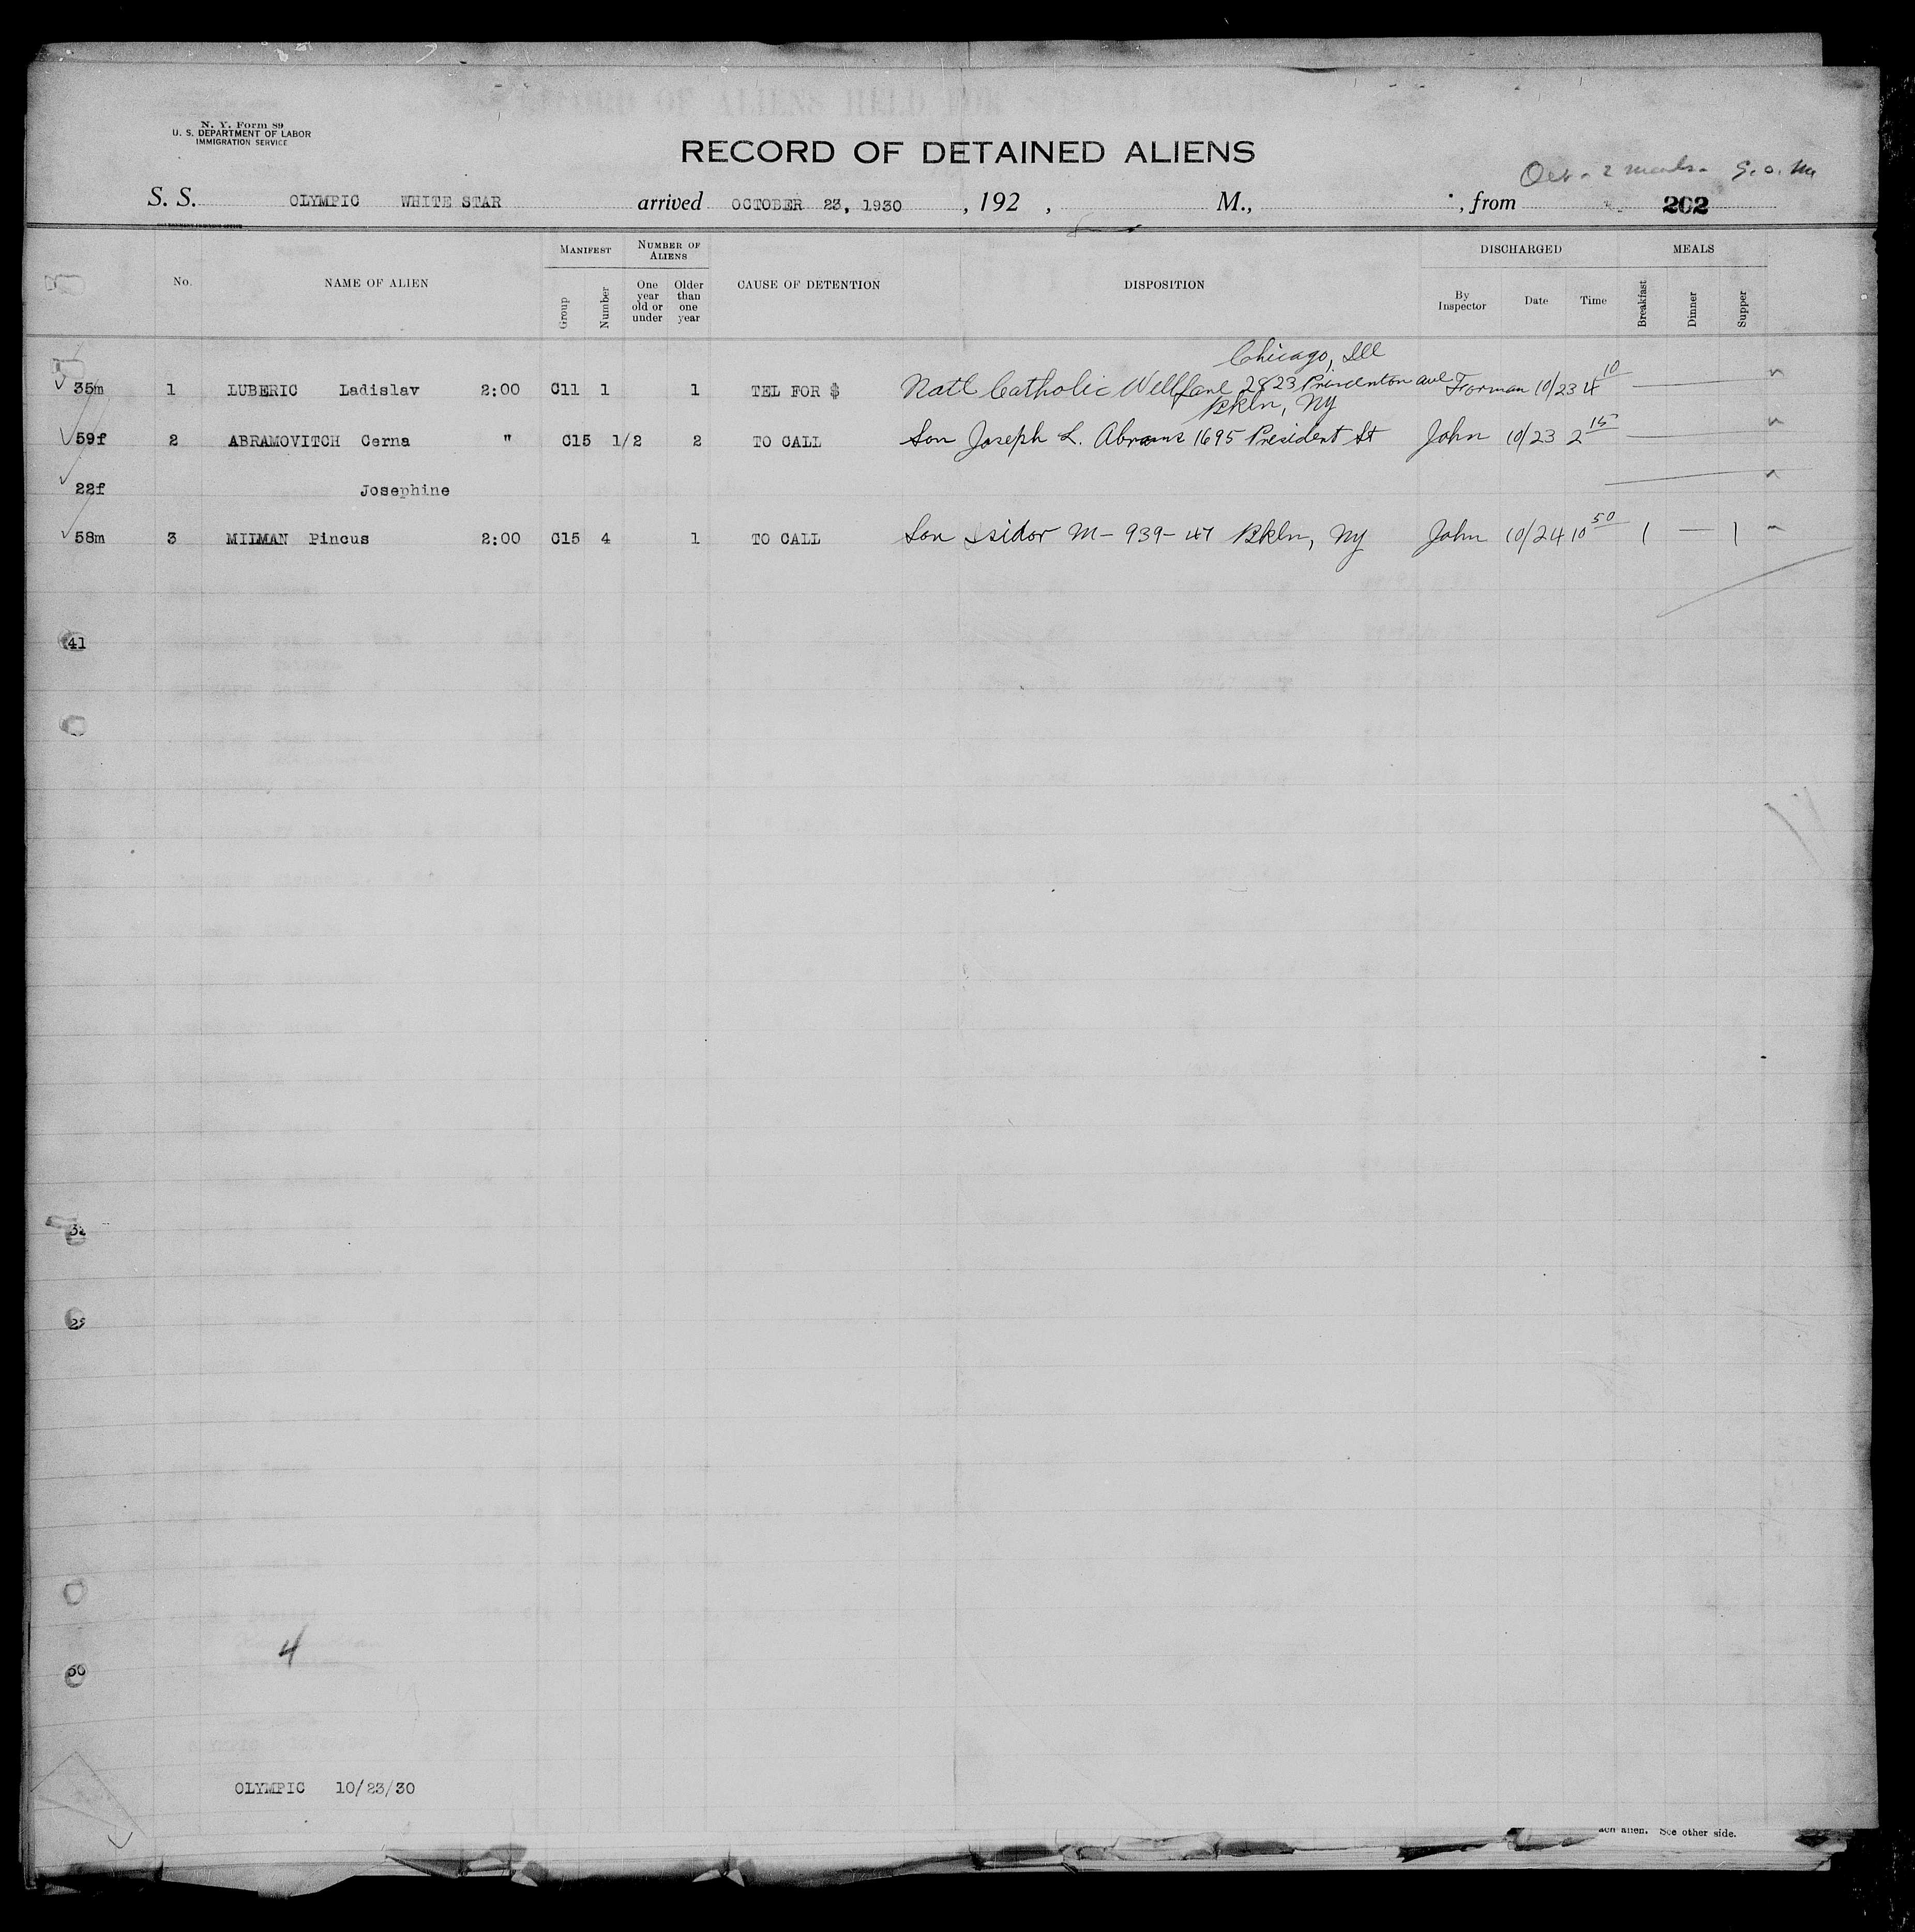 N. Y. Form 89
U. S. DEPARTMENT OF LABOR
IMMIGRATION SERVICE
RECORD OF DETAINED ALIENS
2 meals
S. S. OLYMPIC WHITE STAR arrived OCTOBER 23, 1930, 192 , M., , from 202
No. NAME OF ALIEN MANIFEST NUMBER OF ALIENS CAUSE OF DETENTION DISPOSITION DISCHARGED MEALS
Group Number One year old or under Older than one year By Inspector Date Time Breakfast Dinner Supper
Chicago, Ill
35m 1 LUBERIC Ladislav 2:00 C11 1 1 TEL FOR $ Natl Catholic Wellfare 2823 ave Forman 10/23 4 10
Bkln, Ny
59f 2 ABRAMOVITCH Cerna " C15 1/2 2 TO CALL Son Joseph L. Abrams 1695 President St John 10/23 2 15
22f Josephine
58m 3 MILMAN Pincus 2:00 C15 4 1 TO CALL Son Isidor M - 939 - 47 Bkln, Ny John 10/24 10 50 1 — 1
41
4
OLYMPIC 10/23/30
alien. See other side.